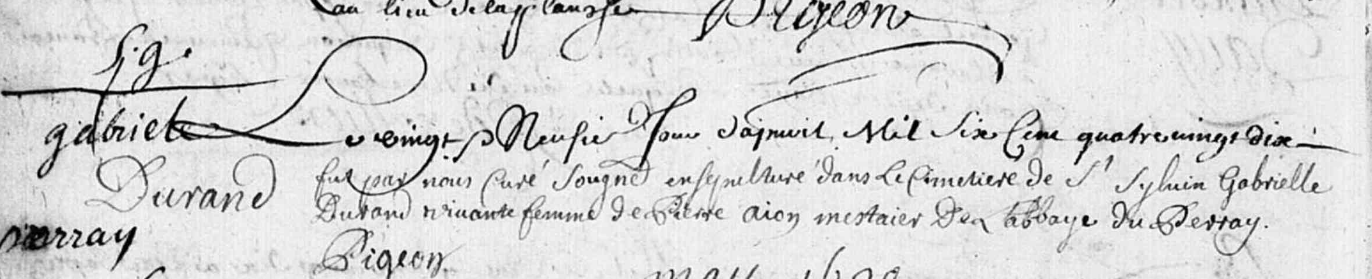 au lieu de la plansse Pigeon
Sg.
gabriele
Durand
perray
Le vingt Neufie Jour dapvril Mil Six Cent quatre vingt dix
fut par nous Curé Sougné ensepulturé dans Le Cimetiere de St Sylvin Gabrielle
Durand vivante femme de Pierre aion mestaier De labbaye du Perray.
Pigeon
may 1690